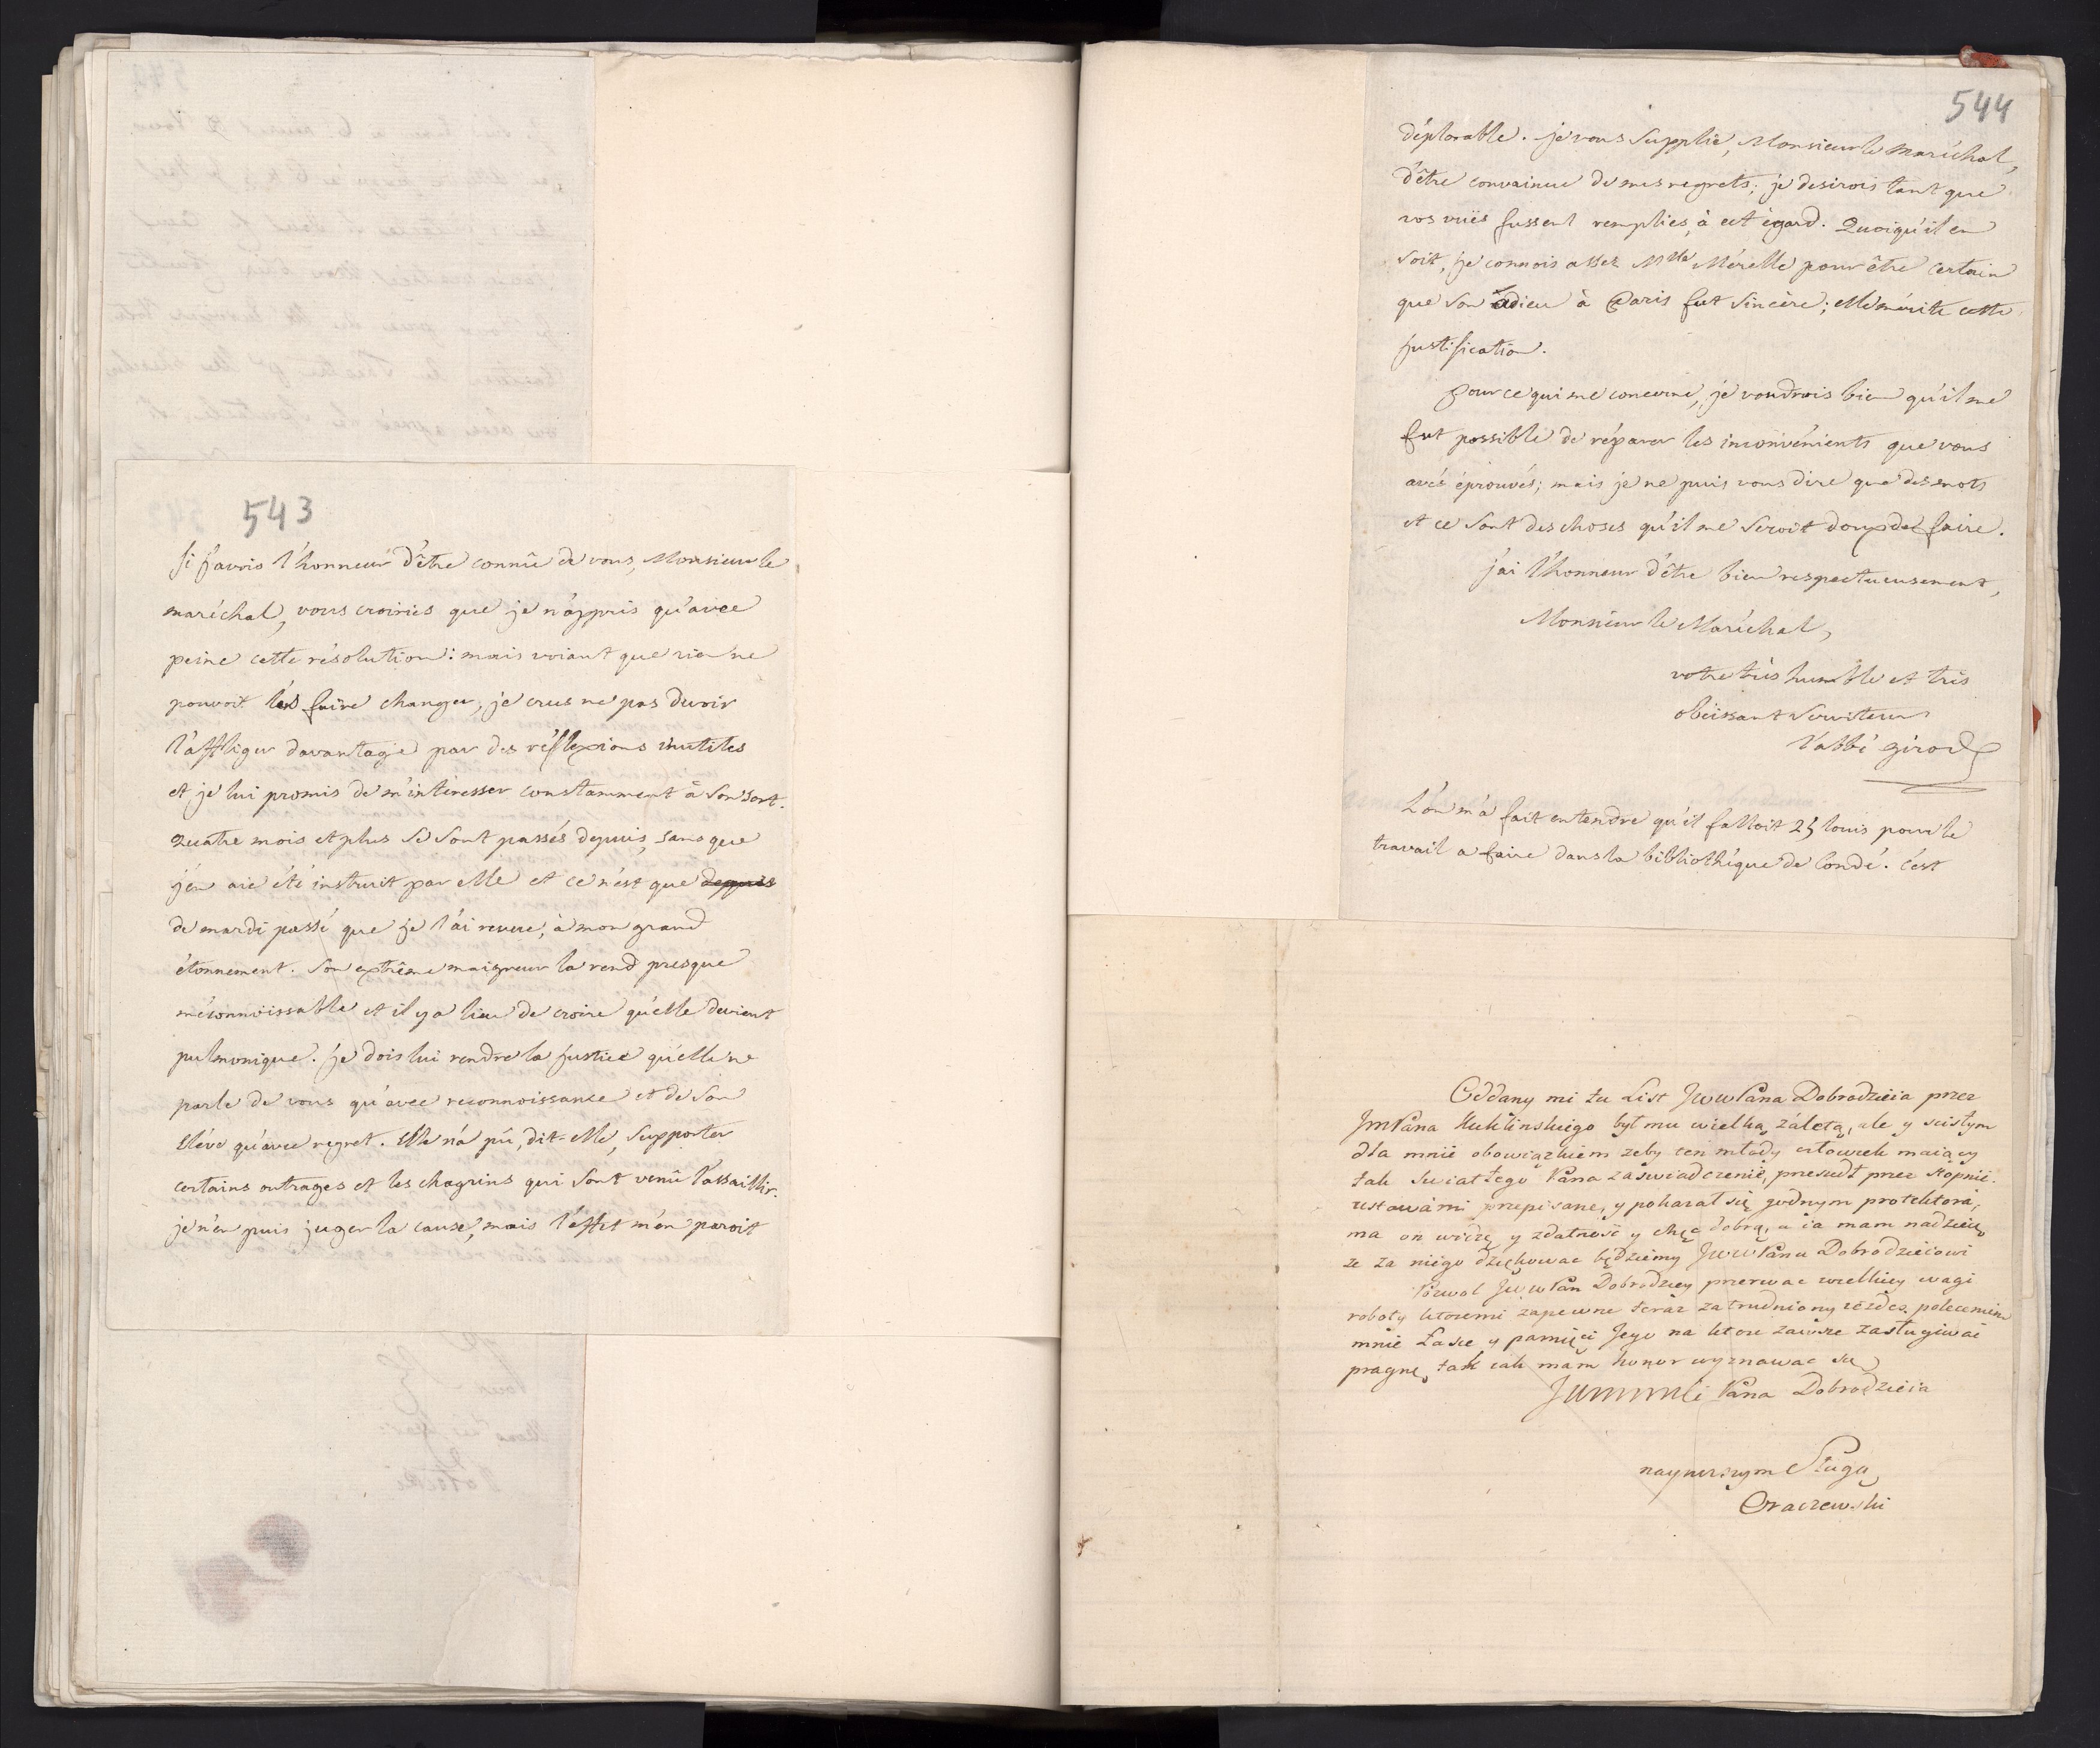 543
Si j'avois l'honneur d'être connû de vous, Monsieur le
maréchal, vous croiriés que je n'appris qu'avec
peine cette résolution: mais voiant que rien ne
pouvoit les faire changer, je crus ne pas devoir
l'affliger davantage par des réflexions inutiles
et je lui promis de m'intéresser constamment à son sort.
Quatre mois et plus se sont passés depuis, sans que
j'en aie été instruit par elle et ce n'est que depuis
de mardi passé que je l'ai revue, à mon grand
étonnement. Son extrême maigreur la rend presque
méconnoissable et il y a lieu de croire qu'elle devient
pulmonique. je dois lui rendre la justice qu'elle ne
parle de vous qu'avec reconnoissance et de son
élève qu'avec regret. Elle n'a pû, dit-elle, supporter
certains outrages et les chagrins qui sont venû l'assaillir.
je n'en puis juger la cause, mais l'effet m'en paroit
544
déplorable. je vous supplie, Monsieur le maréchal,
d'être convaincu de mes regrets; je desirois tant que
vos vuës fussent remplies, à cet égard. Quoiqu'il en
soit, je connois assez Mlle Mérelle pour être certain
que son adieu à Paris fut sincère; elle mérite cette
justification.
Pour ce qui me concerne, je voudrois bien qu'il me
fut possible de réparer les inconvénients que vous
avés éprouvés; mais je ne puis vous dire que des mots
et ce sont des choses qu'il me seroit doux de faire.
j'ai l'honneur d'être bien respectueusement,
Monsieur le Maréchal,
votre très humble et très
obéissant serviteur
l'abbé girod
L'on m'a fait entendre qu'il falloit 25 louis pour le
travail a faire dans la bibliothéque de Condé. c'est
Oddany mi tu List JWW Pana Dobrodzieia przez
JmPana Kuklinskiego był mu wielką zaletą, ale y scisłym
dla mnie obowiązkiem zeby ten młody człowiek maiący
tak swiatłego Pana zaswiadczenie, przeszedł przez stopnie
ustawami przepisane, y pokazał się godnym protektora,
ma on y zdatność y chęć dobrą, a ia mam nadzieię
ze za niego dziękować będziemy JWW Panu Dobrodzieiowi
Pozwol JWW Pan Dobrodziey przerwac wielkiey wagi
roboty ktoremi zapewne teraz zatrudniony poleceniem
mnie Łasce y pamięci Jego na ktore zawsze zasługiwać
pragnę, tak iak mam honor wyznawac się
Pana Dobrodzieia
nayniższym Sługą
Oraczewski